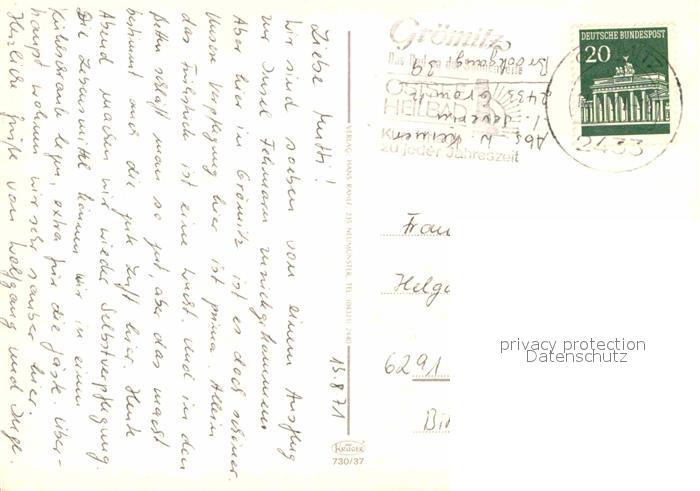 Liebe Mutti!
Wir sind soeben von einem Ausflug
zur Insel Fehmarn zurückgekommen
Aber hier in Grömitz ist es doch schöner.
Unsere Verpflegung hier ist prima. Allein
das Frühstück ist eine Wucht. und in den
Betten schläft man so gut, aber das macht
bestimmt auch die gute Luft hier. Heute
Abend machen wir wieder Selbstverpflegung.
Die Lebensmittel können wir in einen
Kühlschrank legen, extra für die Gäste. Über-
haupt wohnen wir sehr sauber hier.
Herzliche Grüße von Wolfgang und Inge.
13.8.71
VERLAG HANS KRÜGER 235 NEUMÜNSTER, TEL. (04321)
KRÜGER
730/37
Grömitz
Das Bad an der
OSTSEE
HEILBAD
zu jeder Jahreszeit
Abs. W.
2433 Grömitz
Brookgang 39
DEUTSCHE BUNDESPOST
20
2433
Frau
Helga
6291
privacy protection
Datenschutz